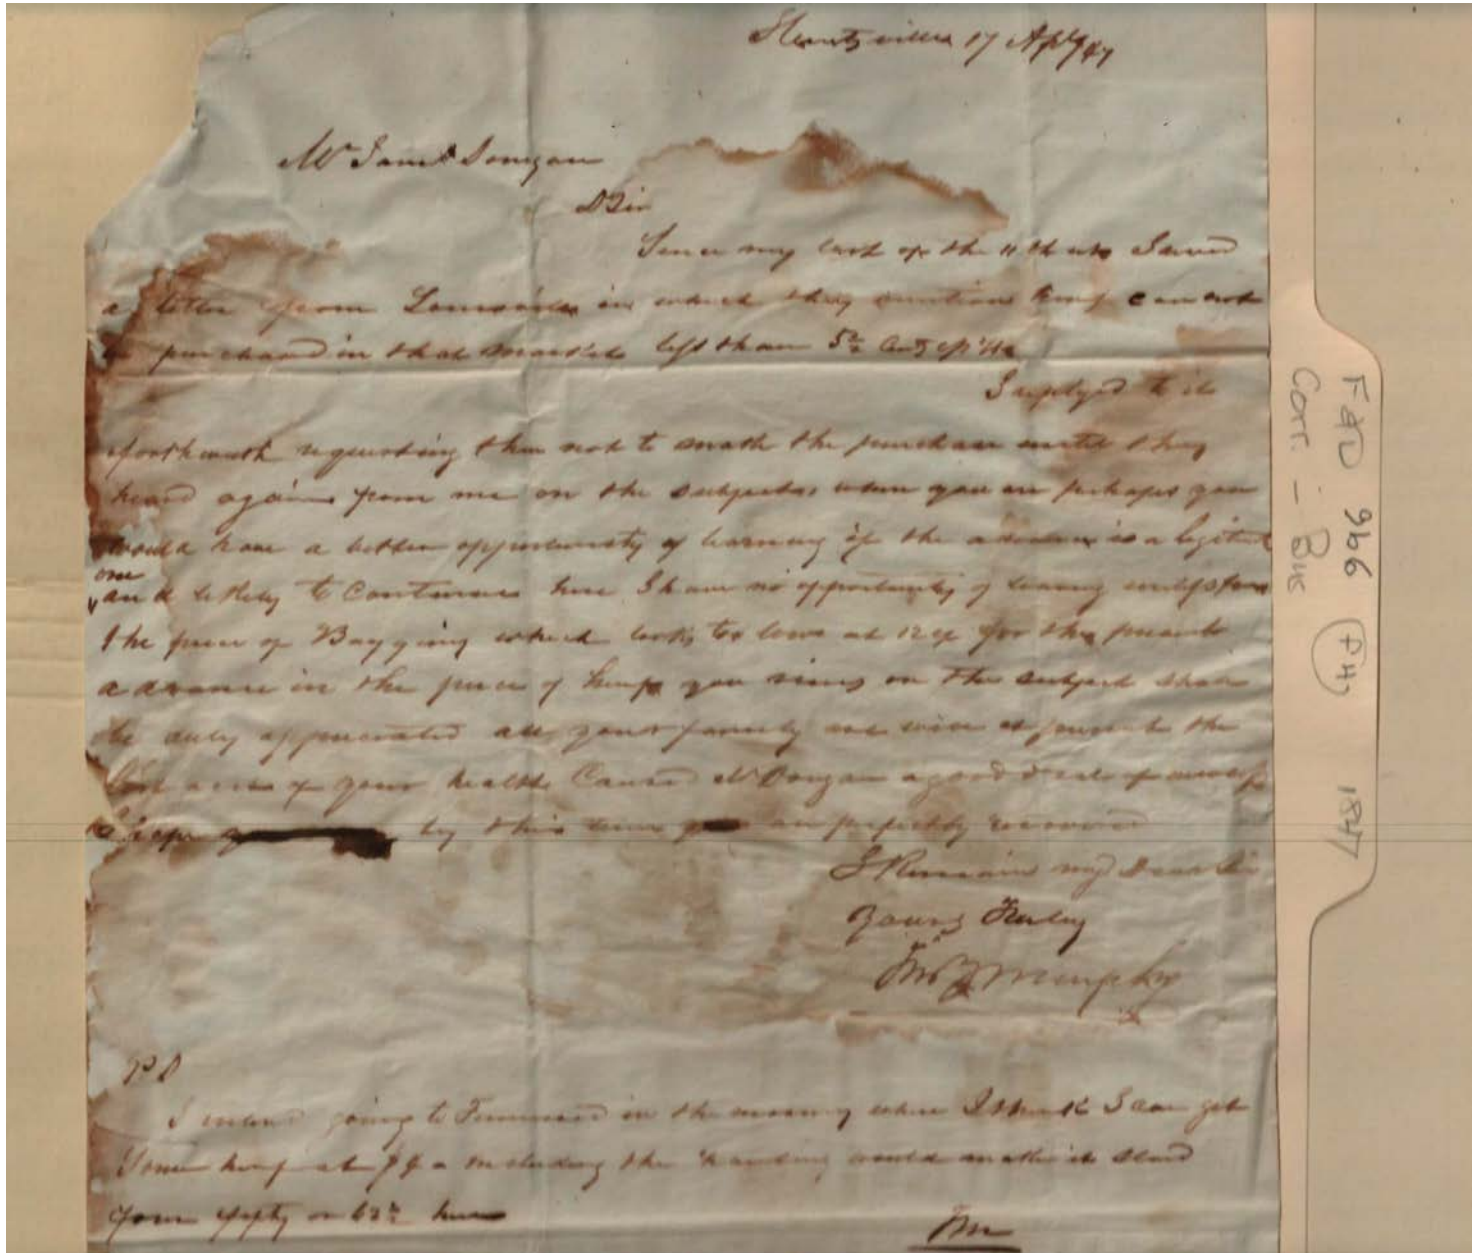 Huntsville 17 Apl /47
Mr Saml Donegan
D Sir
Since my last of the 11th I
a letter from Louisville in which they mention hemp can not
be purchased in that market less than 5 Cents
I replyed to it
forthwith requesting them not to make the purchase until they
heard again from me on the subject where you are perhaps you
would have a better opportunity of learning if the advance is a
one
and likely to Continue here I have no opportunity of unless from
the price of Bagging which looks too low at 12 for the present
advance in the price of hemp your views on the subject shall
be duly appreciated all your family are well at present the
of your health Caused Mrs Donegan a good deal of
I hope by this time are perfectly recovered
I Remain my Dear Sir
Yours Truly
Murphy
PS
I intend going to Tennessee in the morning where I think I can get
Some hemp at including the hauling would make it Stand
from fifty or here
JM
F&D 966 (PH) 1847
Corr. - Bus